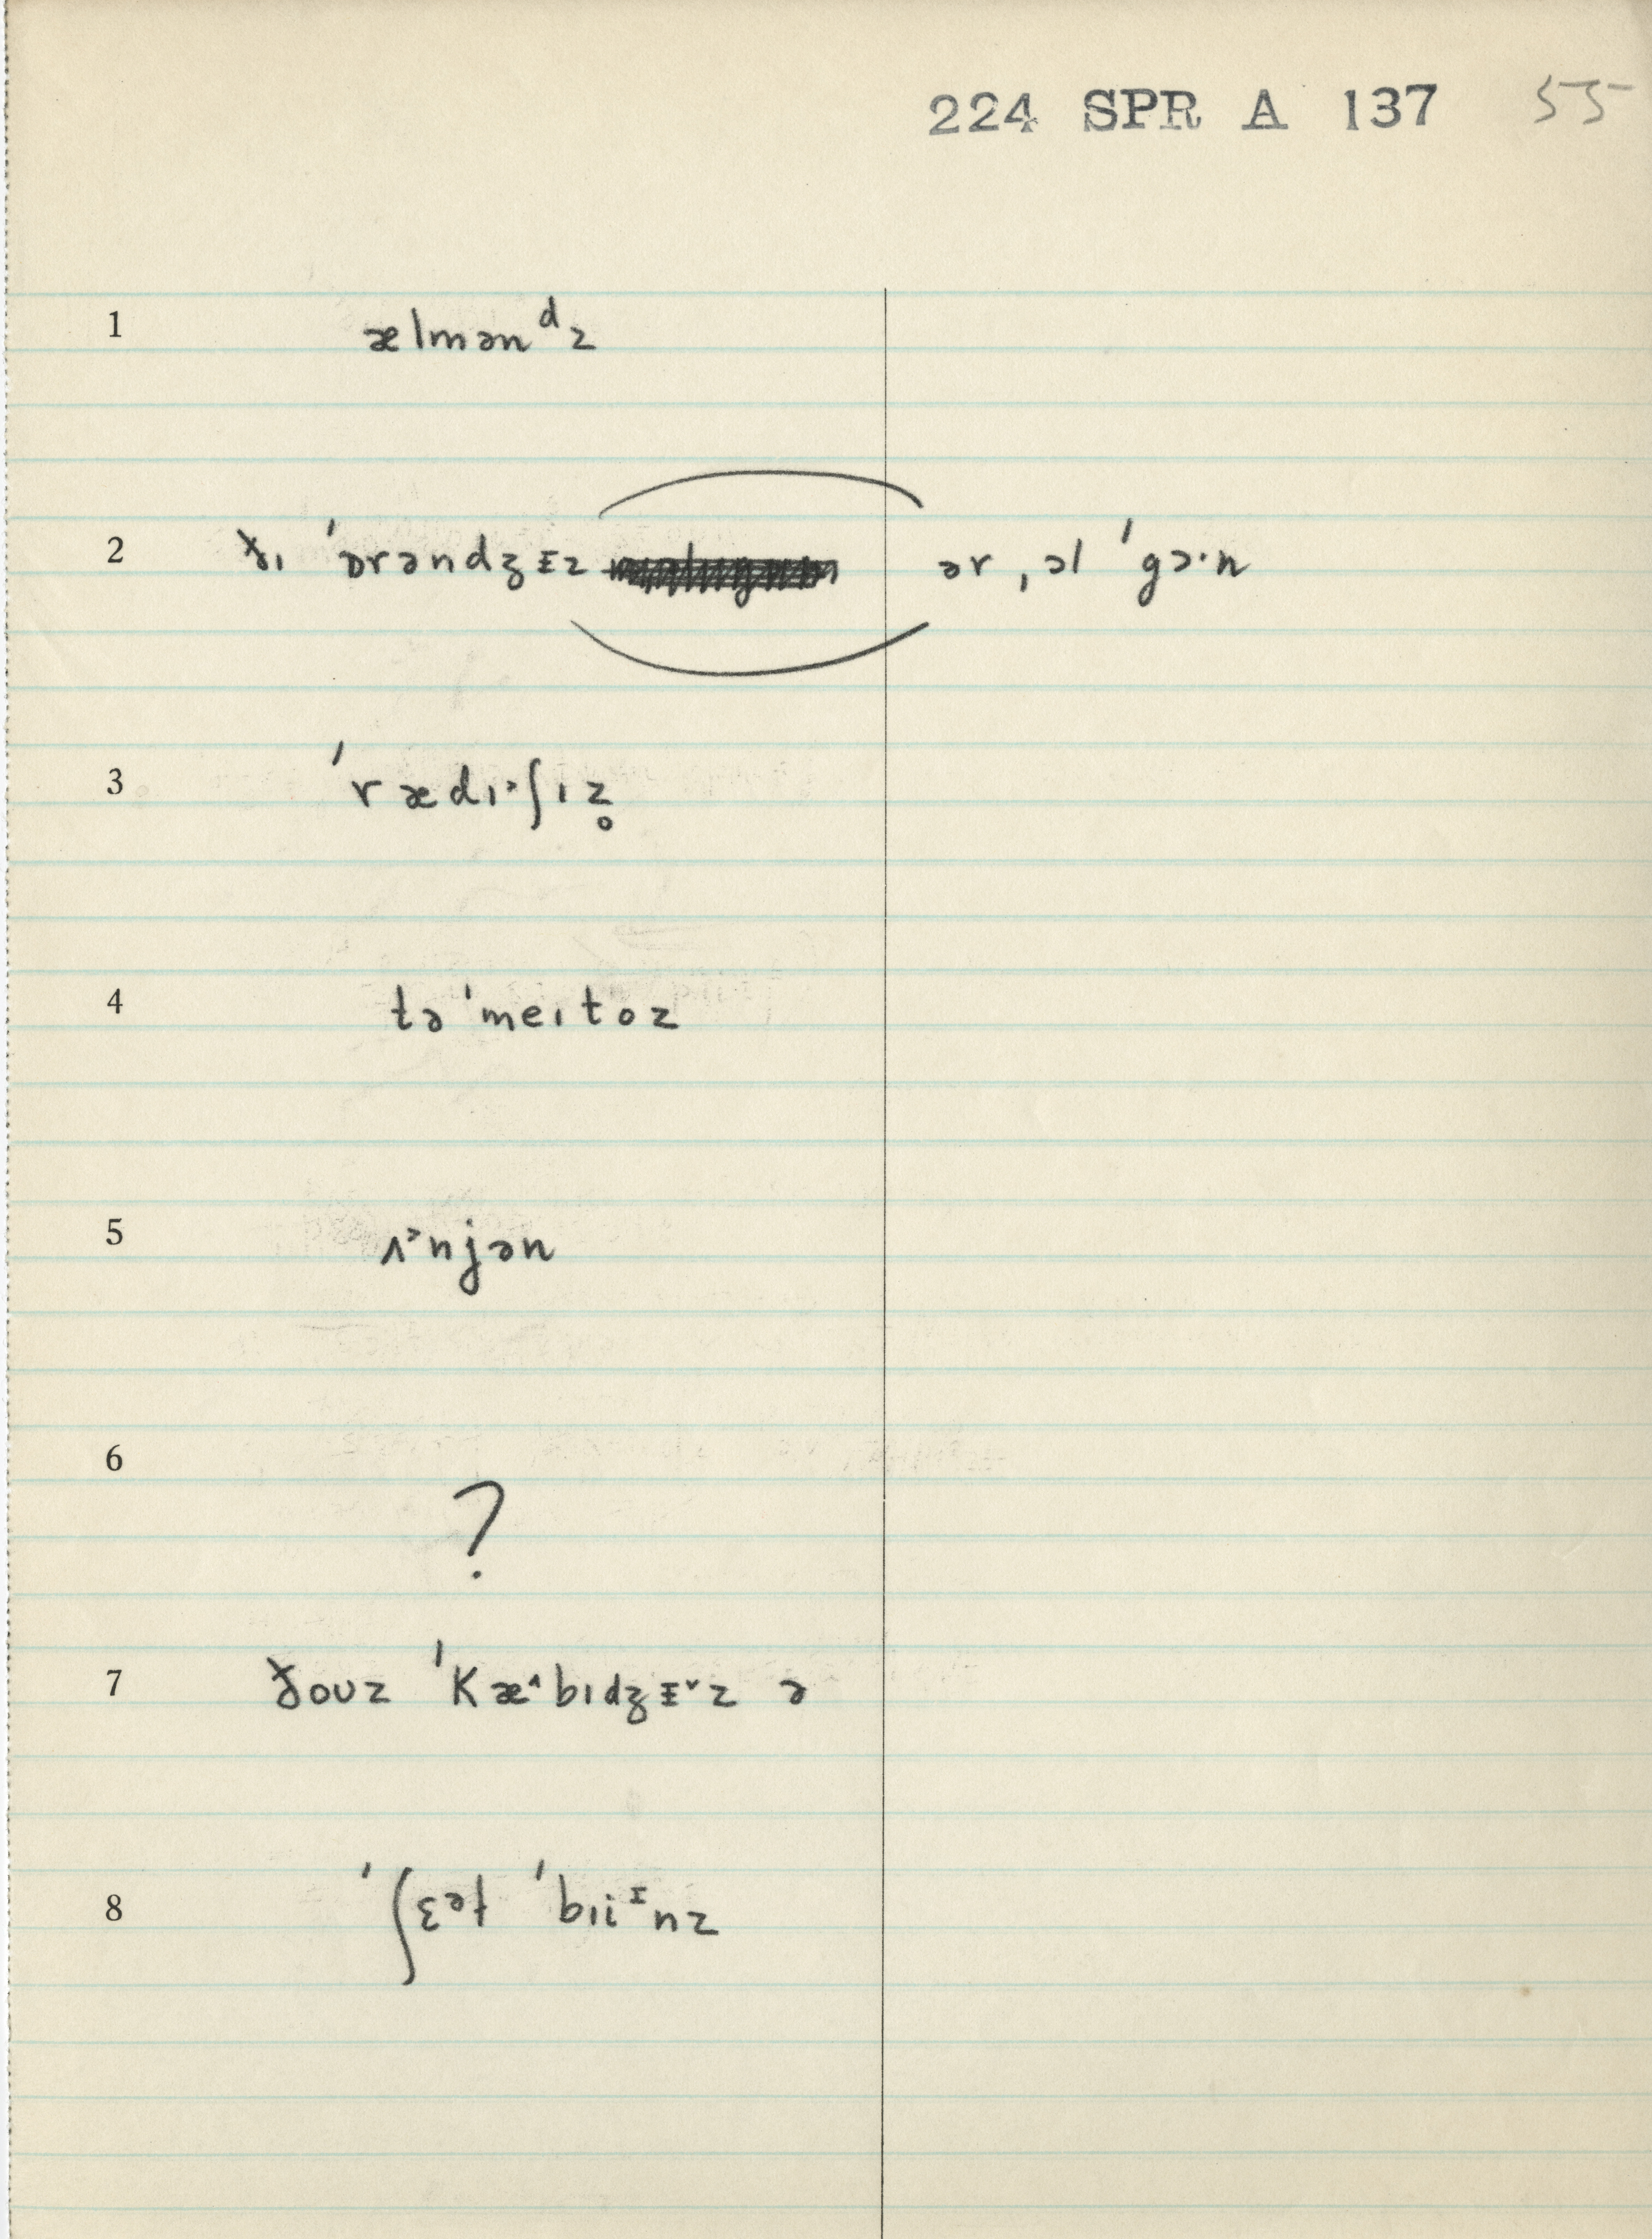 224 SPR A 137 55
1 ælmənᵈz
2 ðɪ ˈɒrəndʒɪz ər ˌɔl ˈgɔ·n
3 ˈrædɪ˃ʃɪz̥
4 təˈmeɪtoz
5 ʌ˃njən
6 ?
7 ðoʊz ˈkæ˄bɪdʒɪ˅z ə
8 ˈʃɛᵊɫ ˈbɪiᶦnz